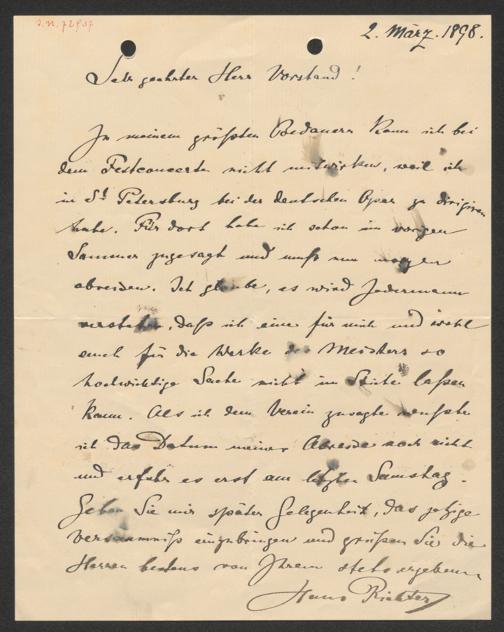 J.N. 72957
2. März. 1898.
Sehr geehrter Herr Vorstand!
Zu meinem größten Bedauern kann ich bei
dem Festconcerte nicht mitwirken, weil ich
in St Petersburg bei der deutschen Oper zu dirigiren
habe. Für dort habe ich schon im vorigen
Sommer zugesagt und muß nun morgen
abreisen. Ich glaube, es wird Jedermann
verstehen, daß ich eine für mich und wohl
auch für die Werke des Meisters so
hochwichtige Sache nicht im Stiche laßen
kann. Als ich dem Verein zusagte wußte
ich das Datum meiner Abreise noch nicht
und erfuhr es erst am letzten Samstag.
Geben Sie mir später Gelegenheit, das jetzige
Versäumniß einzubringen und grüßen Sie die
Herren bestens von Ihrem stets ergebenen
Hans Richter